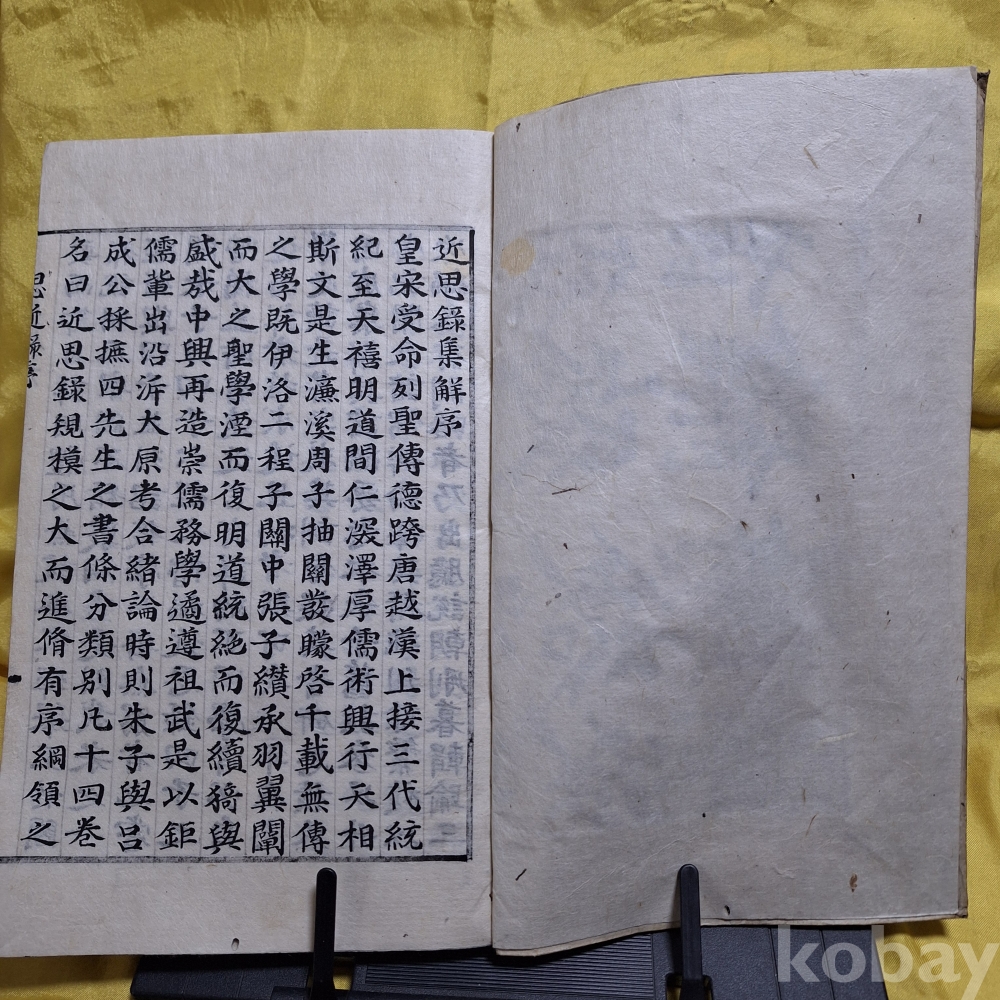 近思錄集解序
皇宋受命列聖傳德跨唐越漢上接三代統
紀至天禧明道間仁深澤厚儒術興行天相
斯文是生濂溪周子抽關發矇啓千載無傳
之學既伊洛二程子關中張子纘承羽翼闡
而大之聖學湮而復明道統絶而復續猗與
盛哉中興再造崇儒務學遹遵祖武是以鉅
儒輩出沿泝大原考合緒論時則朱子與吕
成公採摭四先生之書條分類別凡十四卷
名曰近思錄規模之大而進脩有序綱領之
kobay